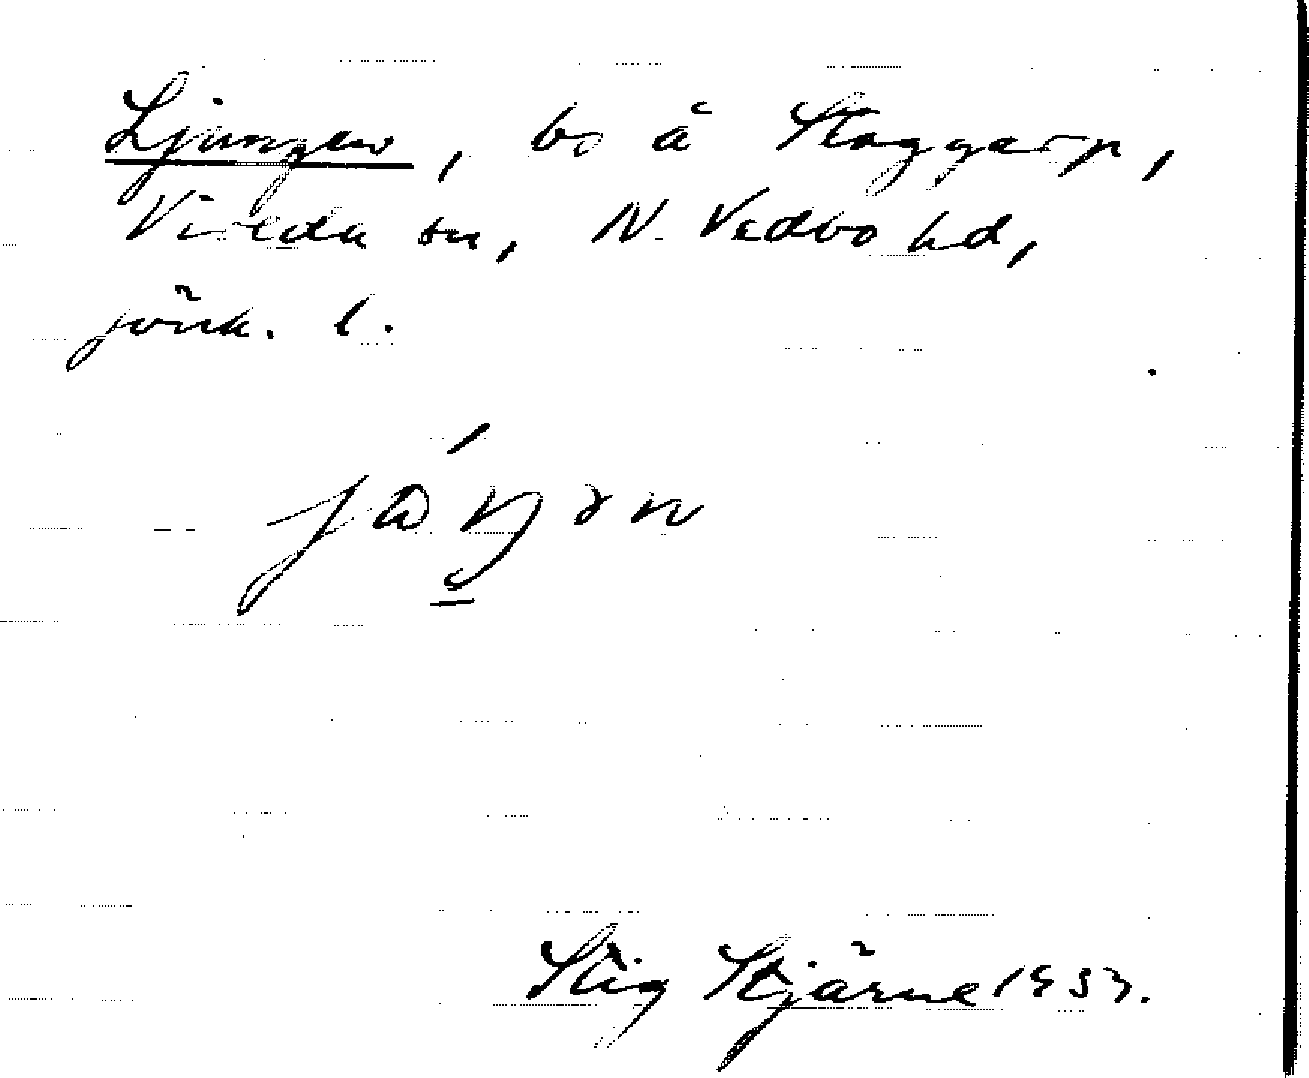 Ljungen, bs å Staggarp,
Vireda sn, N. Vedbo hd,
jönk. l.
Stig Stjärne 1953.